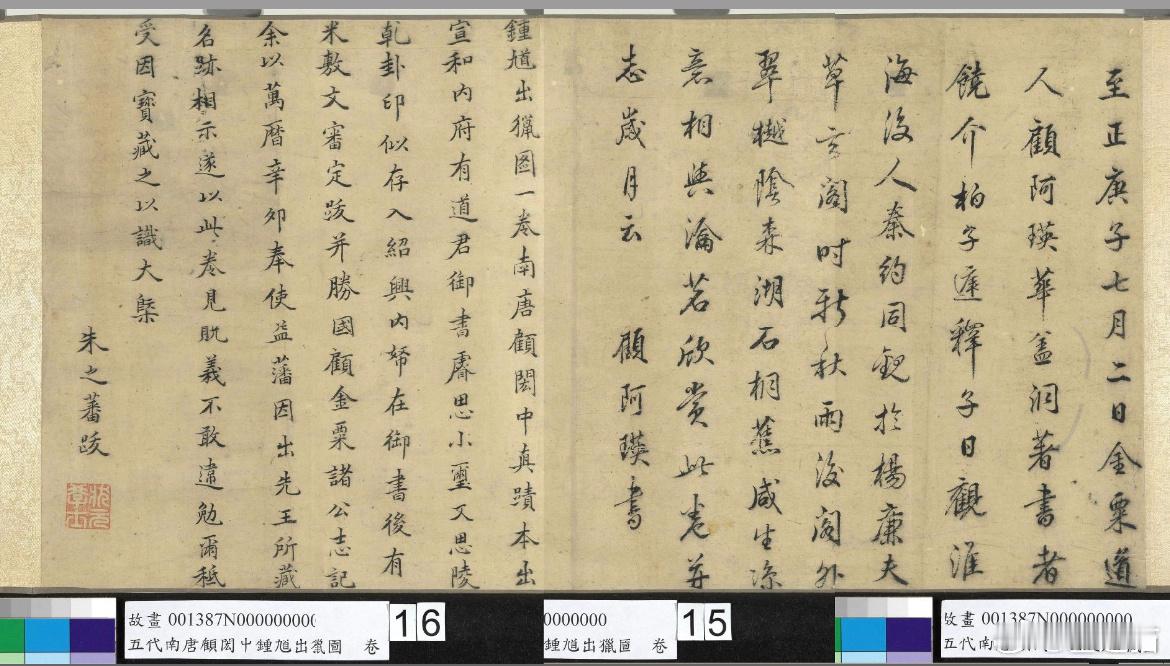 至正庚子七月二日金粟道
人顧阿瑛華盖洞著書者
饒介柏子庭釋子日觀淮
海後人秦約同觀於楊廉夫
草玄閣時新秋雨後閣外
翠樾陰森湖石桐蕉咸生凉
意相與瀹茗欣賞此卷并
志歲月云 顧阿瑛書
鍾馗出獵圖一卷南唐顧閎中真蹟本出
宣和内府有道君御書睿思小璽又思陵
乾卦印似存入紹興内帑在御書後有
米敷文審定跋并勝國顧金粟諸公志記
余以萬曆辛卯奉使益藩因出先王所藏
名跡相示遂以此卷見貺義不敢違勉爾秪
受因寶藏之以識大槩
朱之蕃跋
故畫 001387N000000000
五代南唐顧閎中鍾馗出獵圖 卷
16
0000000
鍾馗出獵圖 卷
15
故畫 001387N000000000
五代南